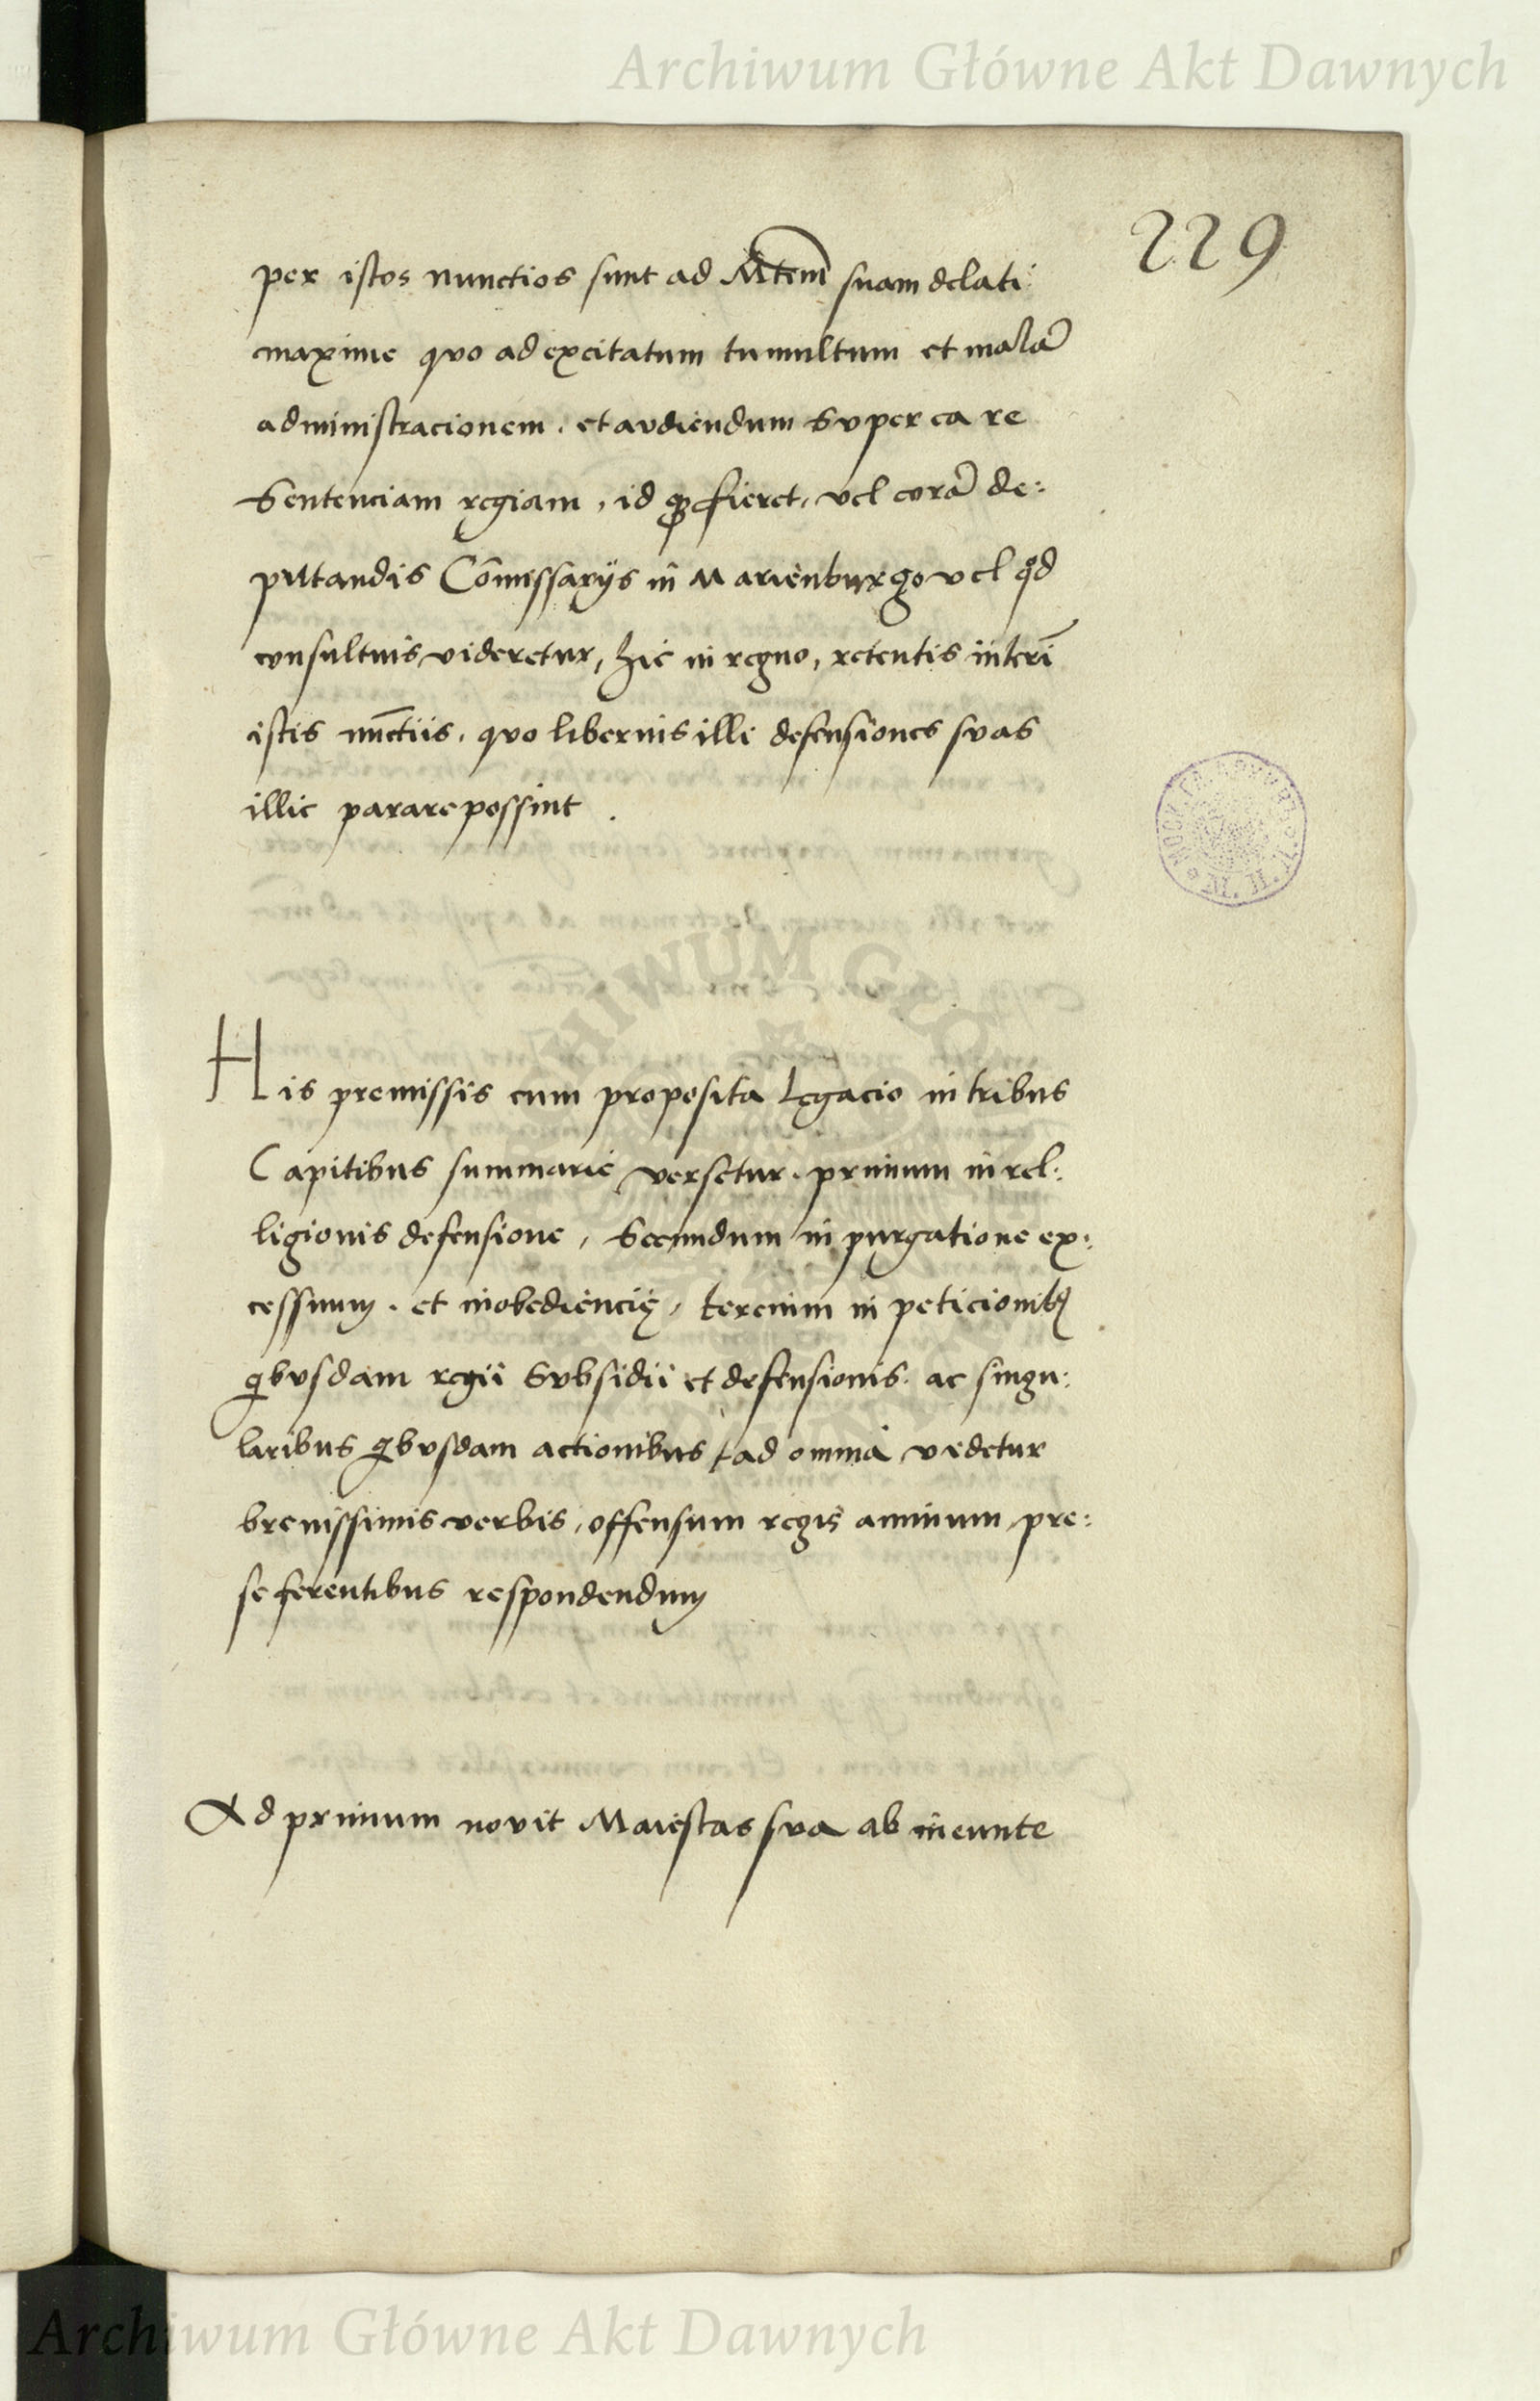 Archiwum Główne Akt Dawnych
229
per istos nunctios sunt ad M̃tem̃ suam delati:
maxime quo ad excitatum tumultum et malã
administracionem. et audiendum super ea re
Sentenciam regiam, id ꝙ fieret, vel corã de:
putandis Cõmissarijs in Marienburgo vel qd̃
consultius videretur, hic in regno, retentis interĩ
istis nũctiis, quo liberius illi defensiones suas
illic parare possint.
His premissis cum proposita legacio in tribus
Capitibus summarie versetur. primum in rel:
ligionis defensione, Secundum in purgatione ex:
cessuum. et inobediencię, tercium in peticionibꝰ
qbusdam regii Subsidii et defensionis. ac singu:
laribus qbusdam actionibus, ad omnia videtur
brevissimis verbis, offensum regis animum, pre:
se ferentibus respondendum
Ad primum novit Maiestas sua ab ineunte
Archiwum Główne Akt Dawnych